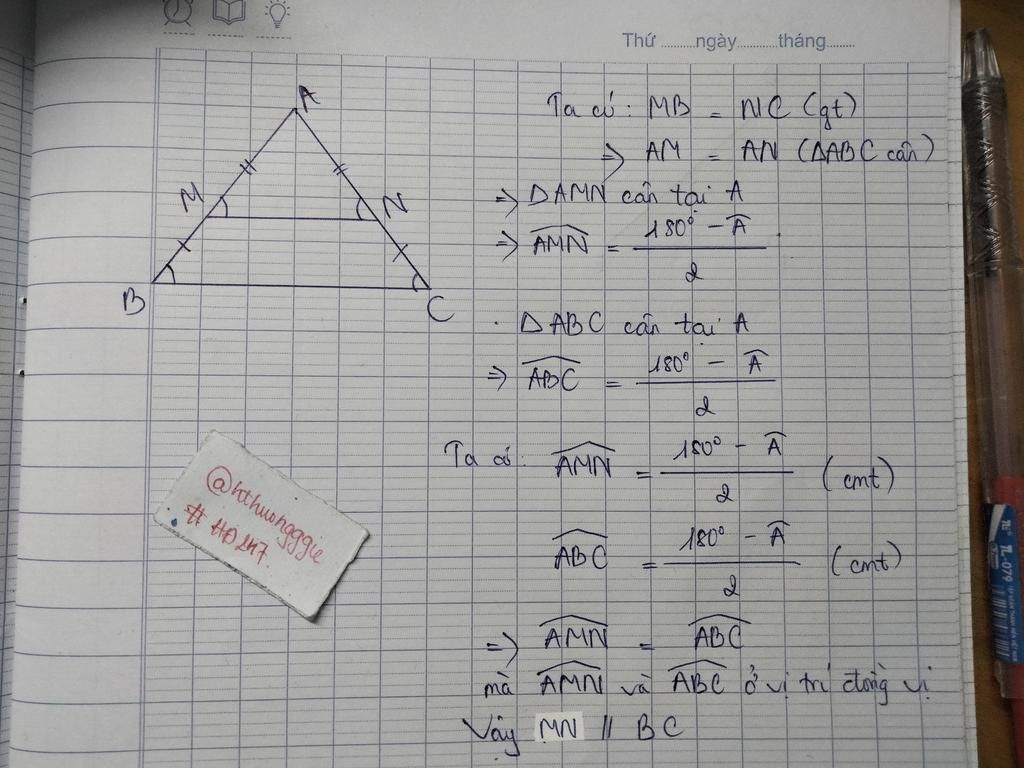 Thứ ..........ngày..........tháng.......
A
M
N
B
C
Ta có: MB = NC (gt)
=> AM = AN (ΔABC cân)
=> ΔAMN cân tại A
=> AMN = 180° - A
2
. ΔABC cân tại A
=> ABC = 180° - A
2
Ta có: AMN = 180° - A (cmt)
2
ABC = 180° - A (cmt)
2
=> AMN = ABC
mà AMN và ABC ở vị trí đồng vị
Vậy MN // BC
@hthuongggie
# HĐ247.
TL-079